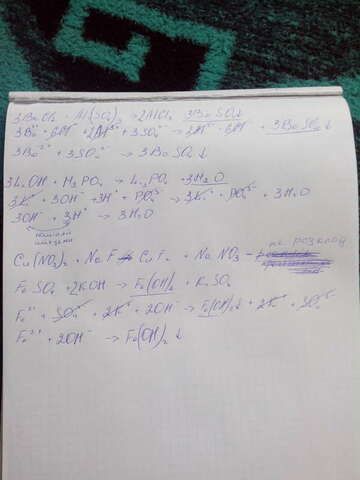 3BaCl₂ + Al₂(SO₄)₃ → 2AlCl₃ + 3BaSO₄↓
3Ba²⁺ + 6Cl⁻ + 2Al³⁺ + 3SO₄²⁻ → 2Al³⁺ + 6Cl⁻ + 3BaSO₄↓
3Ba²⁺ + 3SO₄²⁻ → 3BaSO₄↓
3LiOH + H₃PO₄ → Li₃PO₄ + 3H₂O
3Li⁺ + 3OH⁻ + 3H⁺ + PO₄³⁻ → 3Li⁺ + PO₄³⁻ + 3H₂O
3OH⁻ + 3H⁺ → 3H₂O
Cu(NO₃)₂ + NaF ≠> CuF₂ + NaNO₃ - не розклад
FeSO₄ + 2KOH → Fe(OH)₂↓ + K₂SO₄
Fe²⁺ + SO₄²⁻ + 2K⁺ + 2OH⁻ → Fe(OH)₂↓ + 2K⁺ + SO₄²⁻
Fe²⁺ + 2OH⁻ → Fe(OH)₂↓